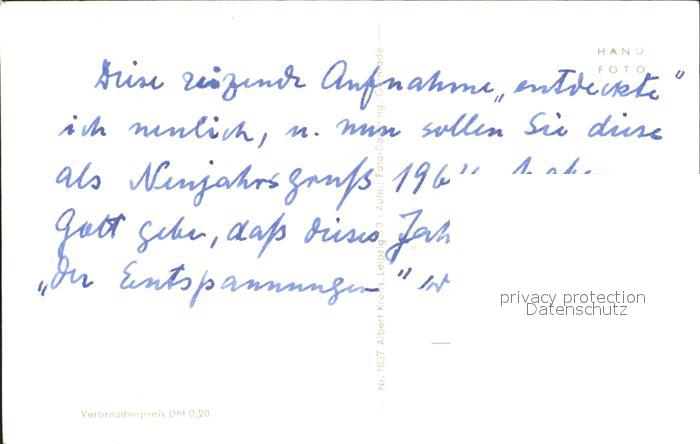 HAND
FOTO
Diese reizende Aufnahme „entdeckte"
ich neulich, u. nun sollen Sie diese
als Neujahrsgruß 196
Gott gebe, daß dieses Jah
„der Entspannungen"
privacy protection
Datenschutz
Nr. 1837 Albert Krebs, Leipzig
Verbraucherpreis DM 0,20